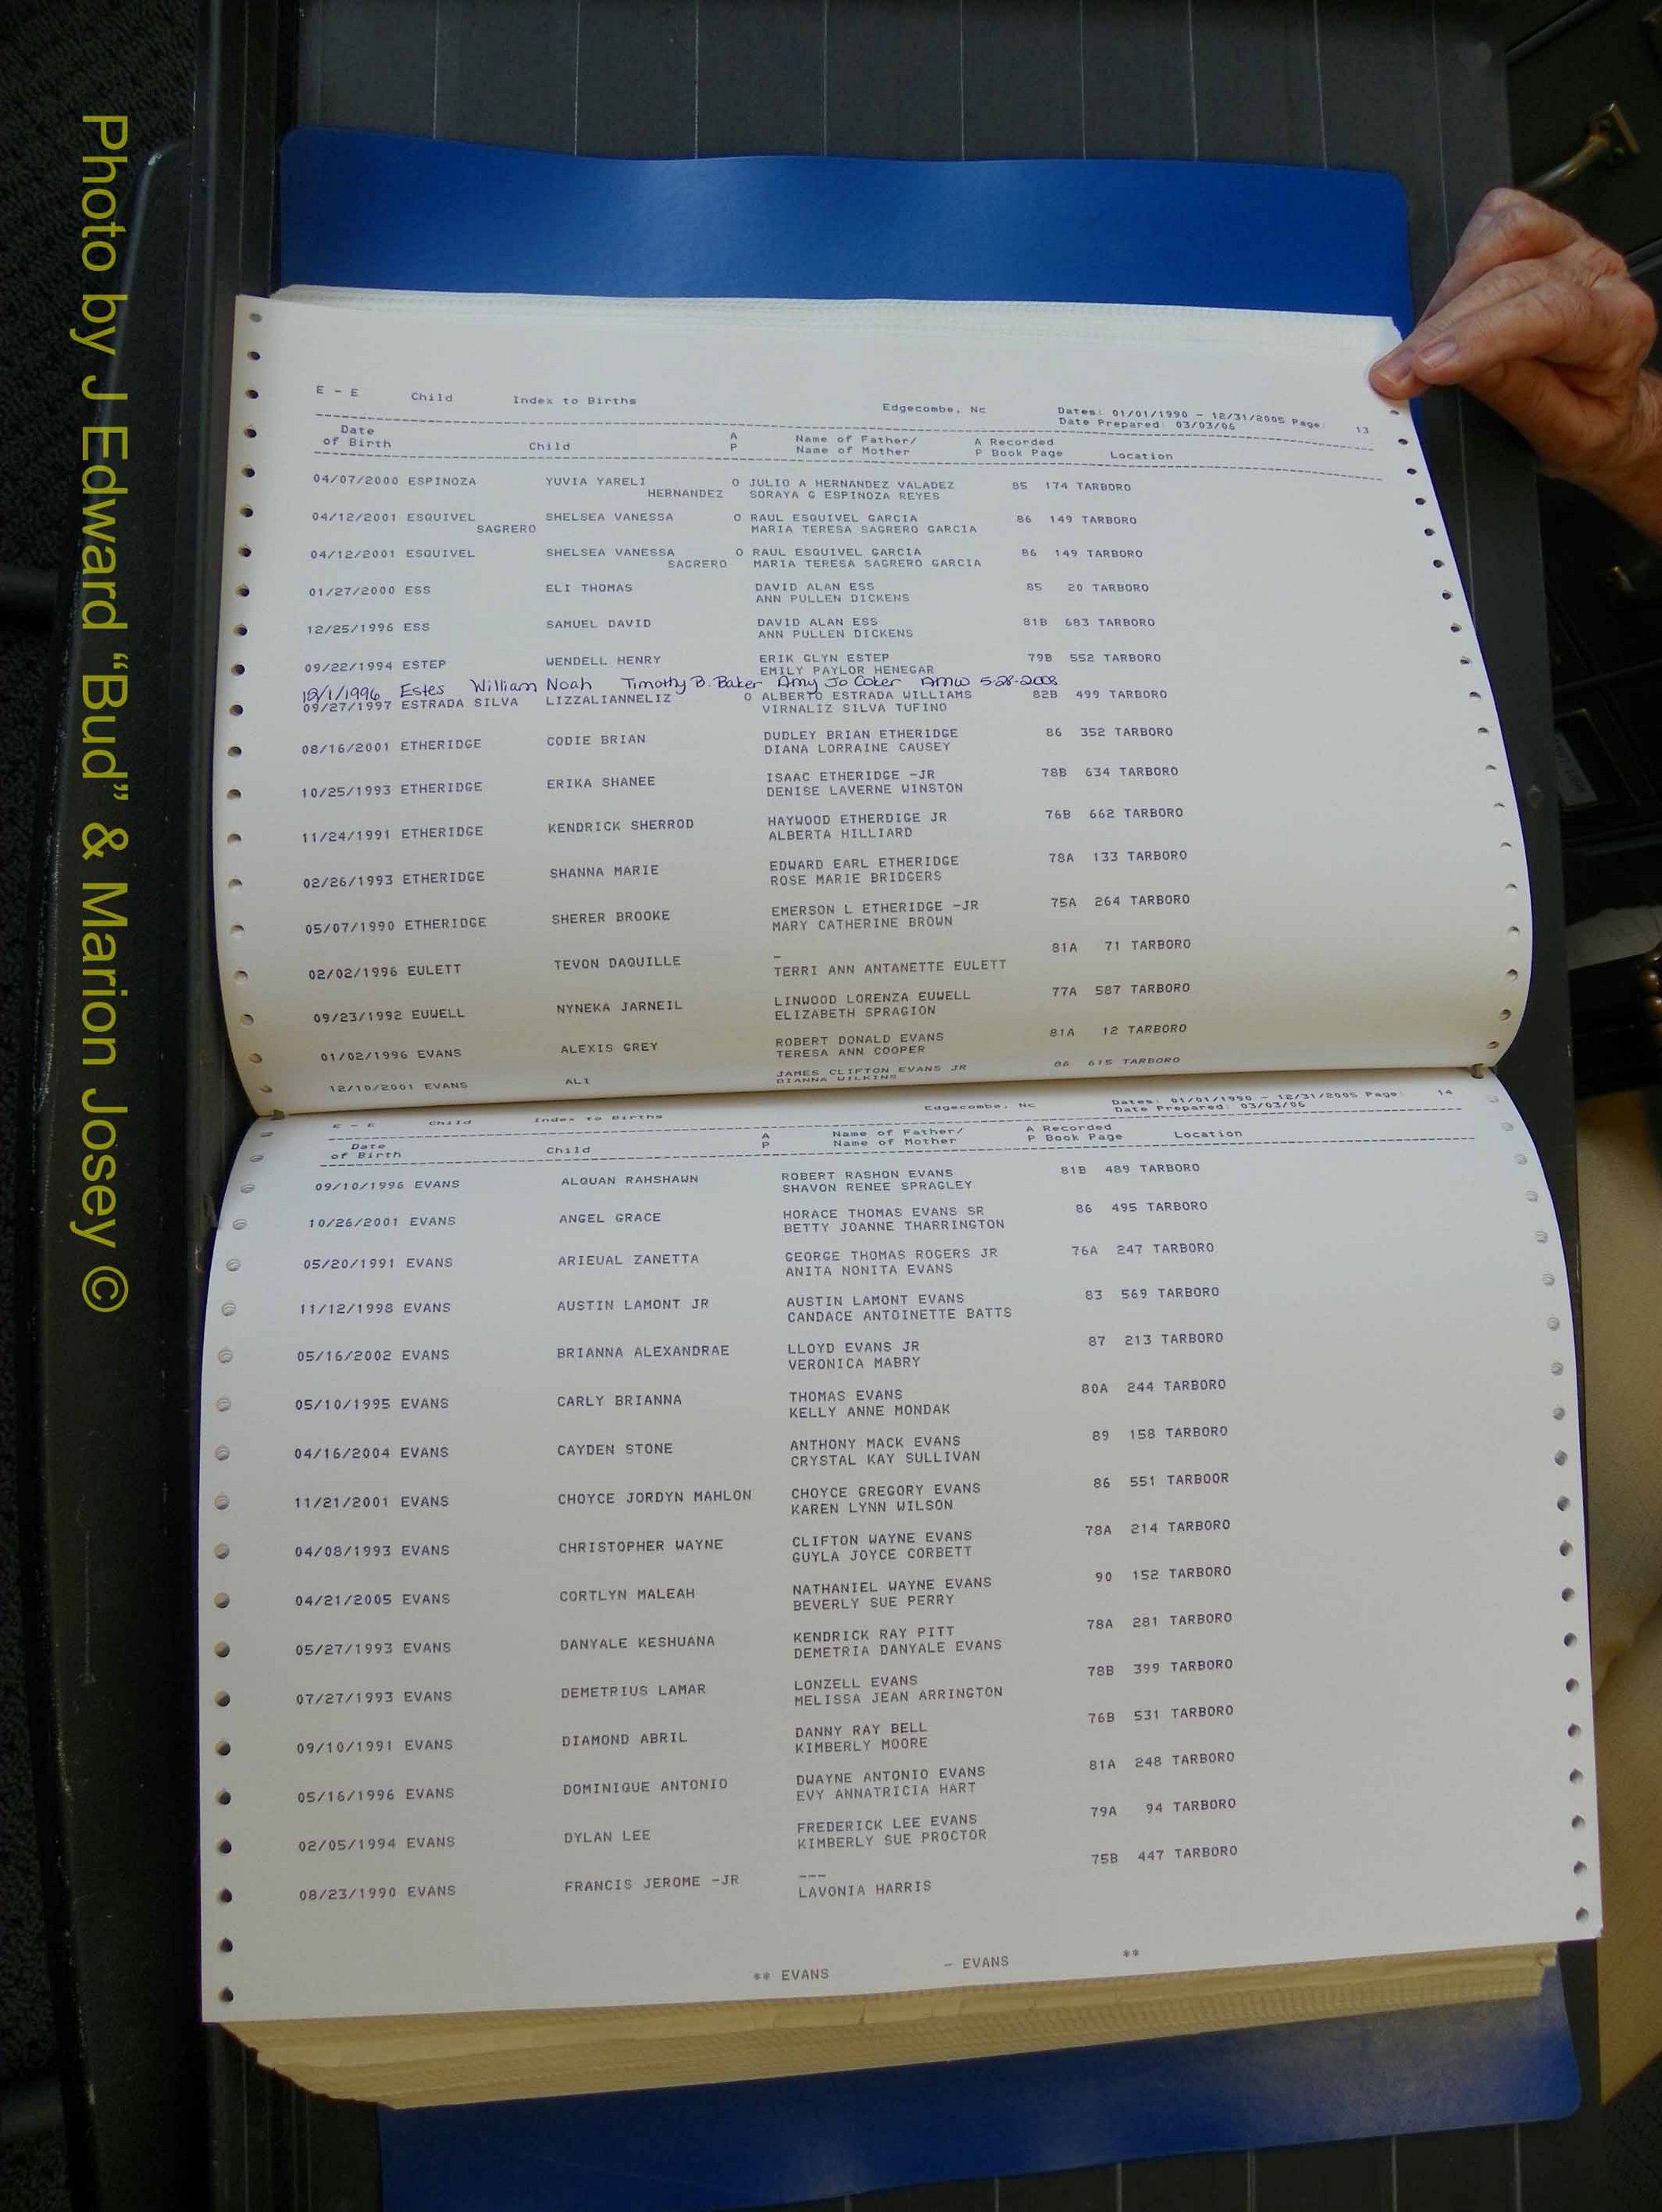 Photo by J Edward “Bud” & Marion Josey ©
E - E Child Index to Births Edgecombe, Nc Dates: 01/01/1990 - 12/31/2005 Page: 13
Date Prepared: 03/03/06
Date of Birth Child A P Name of Father/ Name of Mother A P Recorded Book Page Location
04/07/2000 ESPINOZA YUVIA YARELI O JULIO A HERNANDEZ VALADEZ 85 174 TARBORO
HERNANDEZ SORAYA G ESPINOZA REYES
04/12/2001 ESQUIVEL SHELSEA VANESSA O RAUL ESQUIVEL GARCIA 86 149 TARBORO
SAGRERO MARIA TERESA SAGRERO GARCIA
04/12/2001 ESQUIVEL SHELSEA VANESSA O RAUL ESQUIVEL GARCIA 86 149 TARBORO
SAGRERO MARIA TERESA SAGRERO GARCIA
01/27/2000 ESS ELI THOMAS DAVID ALAN ESS 85 20 TARBORO
ANN PULLEN DICKENS
12/25/1996 ESS SAMUEL DAVID DAVID ALAN ESS 81B 683 TARBORO
ANN PULLEN DICKENS
09/22/1994 ESTEP WENDELL HENRY ERIK GLYN ESTEP 79B 552 TARBORO
EMILY PAYLOR HENEGAR
12/1/1996 Estes William Noah Timothy B. Baker Amy Jo Coker AMW 5-28-2008
09/27/1997 ESTRADA SILVA LIZZALIANNELIZ O ALBERTO ESTRADA WILLIAMS 82B 499 TARBORO
VIRNALIZ SILVA TUFINO
08/16/2001 ETHERIDGE CODIE BRIAN DUDLEY BRIAN ETHERIDGE 86 352 TARBORO
DIANA LORRAINE CAUSEY
10/25/1993 ETHERIDGE ERIKA SHANEE ISAAC ETHERIDGE -JR 78B 634 TARBORO
DENISE LAVERNE WINSTON
11/24/1991 ETHERIDGE KENDRICK SHERROD HAYWOOD ETHERDIGE JR 76B 662 TARBORO
ALBERTA HILLIARD
02/26/1993 ETHERIDGE SHANNA MARIE EDWARD EARL ETHERIDGE 78A 133 TARBORO
ROSE MARIE BRIDGERS
05/07/1990 ETHERIDGE SHERER BROOKE EMERSON L ETHERIDGE -JR 75A 264 TARBORO
MARY CATHERINE BROWN
02/02/1996 EULETT TEVON DAQUILLE - 81A 71 TARBORO
TERRI ANN ANTANETTE EULETT
09/23/1992 EUWELL NYNEKA JARNEIL LINWOOD LORENZA EUWELL 77A 587 TARBORO
ELIZABETH SPRAGION
01/02/1996 EVANS ALEXIS GREY ROBERT DONALD EVANS 81A 12 TARBORO
TERESA ANN COOPER
12/10/2001 EVANS ALI JAMES CLIFTON EVANS JR 86 615 TARBORO
DIANNA WILKINS
E - E Child Index to Births Edgecombe, Nc Dates: 01/01/1990 - 12/31/2005 Page: 14
Date Prepared: 03/03/06
Date of Birth Child A P Name of Father/ Name of Mother A P Recorded Book Page Location
09/10/1996 EVANS ALQUAN RAHSHAWN ROBERT RASHON EVANS 81B 489 TARBORO
SHAVON RENEE SPRAGLEY
10/26/2001 EVANS ANGEL GRACE HORACE THOMAS EVANS SR 86 495 TARBORO
BETTY JOANNE THARRINGTON
05/20/1991 EVANS ARIEUAL ZANETTA GEORGE THOMAS ROGERS JR 76A 247 TARBORO
ANITA NONITA EVANS
11/12/1998 EVANS AUSTIN LAMONT JR AUSTIN LAMONT EVANS 83 569 TARBORO
CANDACE ANTOINETTE BATTS
05/16/2002 EVANS BRIANNA ALEXANDRAE LLOYD EVANS JR 87 213 TARBORO
VERONICA MABRY
05/10/1995 EVANS CARLY BRIANNA THOMAS EVANS 80A 244 TARBORO
KELLY ANNE MONDAK
04/16/2004 EVANS CAYDEN STONE ANTHONY MACK EVANS 89 158 TARBORO
CRYSTAL KAY SULLIVAN
11/21/2001 EVANS CHOYCE JORDYN MAHLON CHOYCE GREGORY EVANS 86 551 TARBOOR
KAREN LYNN WILSON
04/08/1993 EVANS CHRISTOPHER WAYNE CLIFTON WAYNE EVANS 78A 214 TARBORO
GUYLA JOYCE CORBETT
04/21/2005 EVANS CORTLYN MALEAH NATHANIEL WAYNE EVANS 90 152 TARBORO
BEVERLY SUE PERRY
05/27/1993 EVANS DANYALE KESHUANA KENDRICK RAY PITT 78A 281 TARBORO
DEMETRIA DANYALE EVANS
07/27/1993 EVANS DEMETRIUS LAMAR LONZELL EVANS 78B 399 TARBORO
MELISSA JEAN ARRINGTON
09/10/1991 EVANS DIAMOND ABRIL DANNY RAY BELL 76B 531 TARBORO
KIMBERLY MOORE
05/16/1996 EVANS DOMINIQUE ANTONIO DWAYNE ANTONIO EVANS 81A 248 TARBORO
EVY ANNATRICIA HART
02/05/1994 EVANS DYLAN LEE FREDERICK LEE EVANS 79A 94 TARBORO
KIMBERLY SUE PROCTOR
08/23/1990 EVANS FRANCIS JEROME -JR --- 75B 447 TARBORO
LAVONIA HARRIS
** EVANS - EVANS **